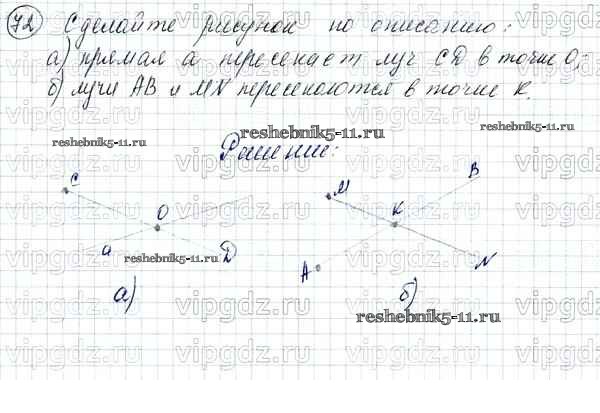 72 Сделайте рисунок по описанию:
а) прямая а пересекает луч CD в точке О;
б) лучи АВ и MN пересекаются в точке К.
reshebnik5-11.ru
reshebnik5-11.ru
reshebnik5-11.ru
Решение:
C
O
a
D
M
K
B
A
N
reshebnik5-11.ru
а)
б)
reshebnik5-11.ru
vipgdz.ru